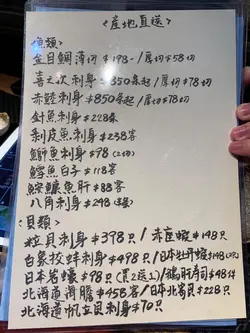 <産地直送>
魚類>
金目鯛薄切$198-/厚切$58切
喜之次刺身$350条起/厚切$78切
赤鯥刺身$850条起/厚切$78切
針魚刺身$228条
剥皮魚刺身$238客
鰤魚刺身$98(2切)
鱈魚白子$118客
鮟鱇魚肝$88客
八角刺身$298
貝類>
粒貝刺身$398只/赤座蝦$148只
白象拔蚌刺身$498只/日本牡丹蝦$148
日本岩蠔$98只(買2送1)/鵝肝寿司$48件
北海道海膽$458客/日本北寄貝$228只
北海道帆立貝刺身$70只